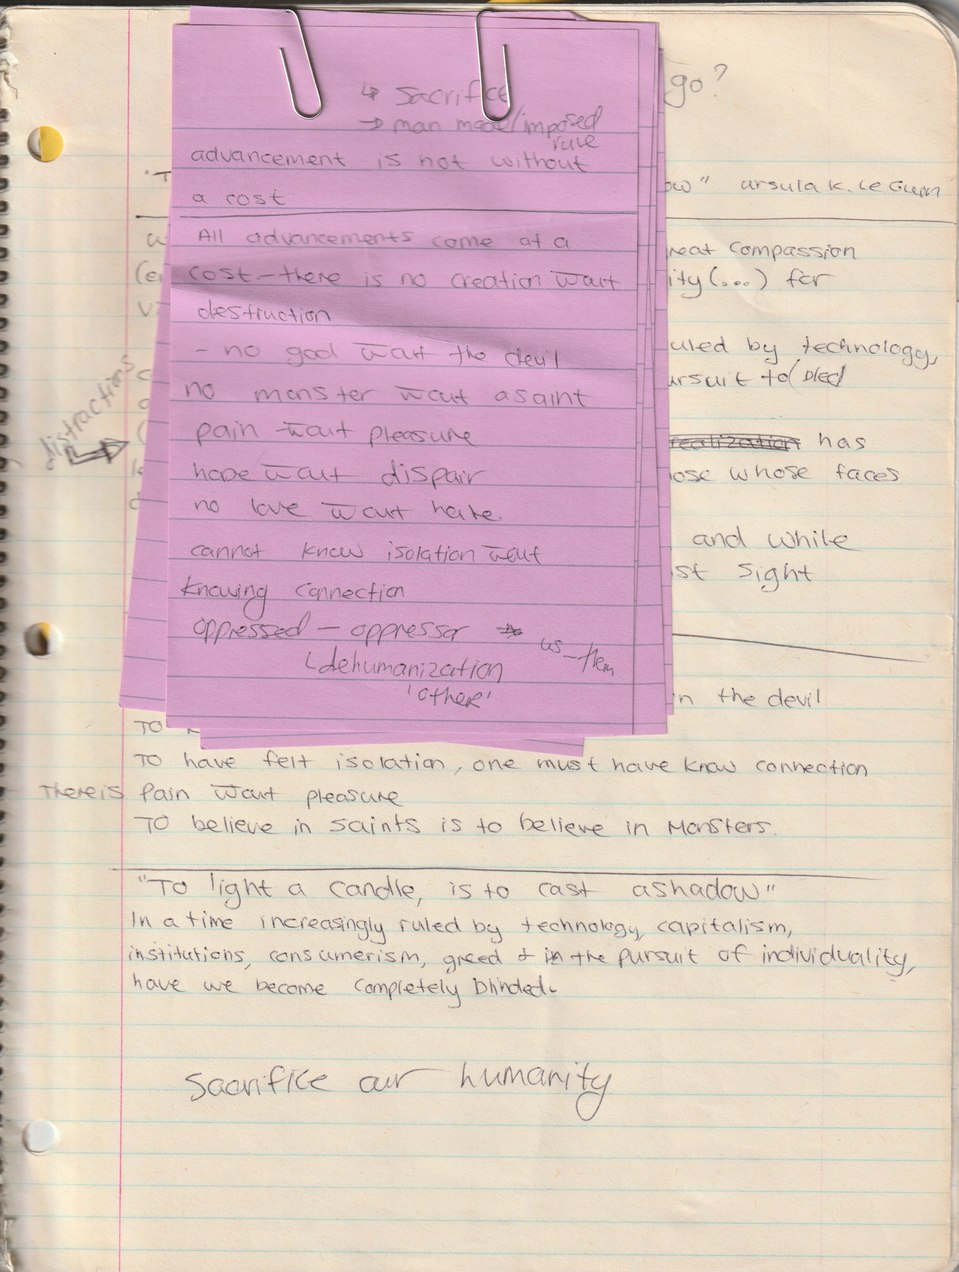 ↳ Sacrifice
→ man made/imposed
rule
advancement is not without
a cost
All advancements come at a
cost – there is no creation w̅out
destruction
- no god w̅out the devil
no monster w̅out a saint
pain w̅out pleasure
hope w̅out dispair
no love w̅out hate.
cannot know isolation w̅out
knowing connection
oppressed – oppressor
us – them
dehumanization
'other'
go?
ow" ursula k. Le Guin
reat compassion
ity (...) for
uled by technology,
ursuit to
realization has
ose whose faces
and while
st sight
distractions
in the devil
To
To have felt isolation, one must have know connection
There is pain w̅out pleasure
To believe in saints is to believe in Monsters.
"To light a candle, is to cast a shadow"
In a time increasingly ruled by technology, capitalism,
institutions, consumerism, greed & in the pursuit of individuality,
have we become completely blinded.
Sacrifice our humanity